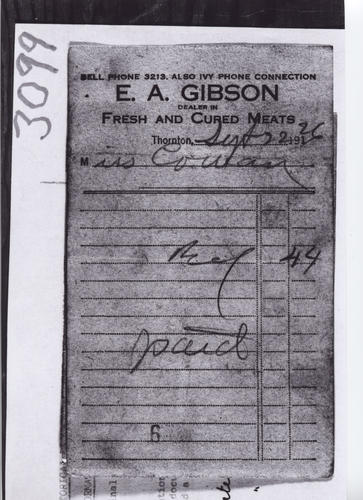 3099
BELL PHONE 3213. ALSO IVY PHONE CONNECTION
E. A. GIBSON
DEALER IN
FRESH AND CURED MEATS
Thornton, Sept 22 1926
Miss Cowan
44
paid
6